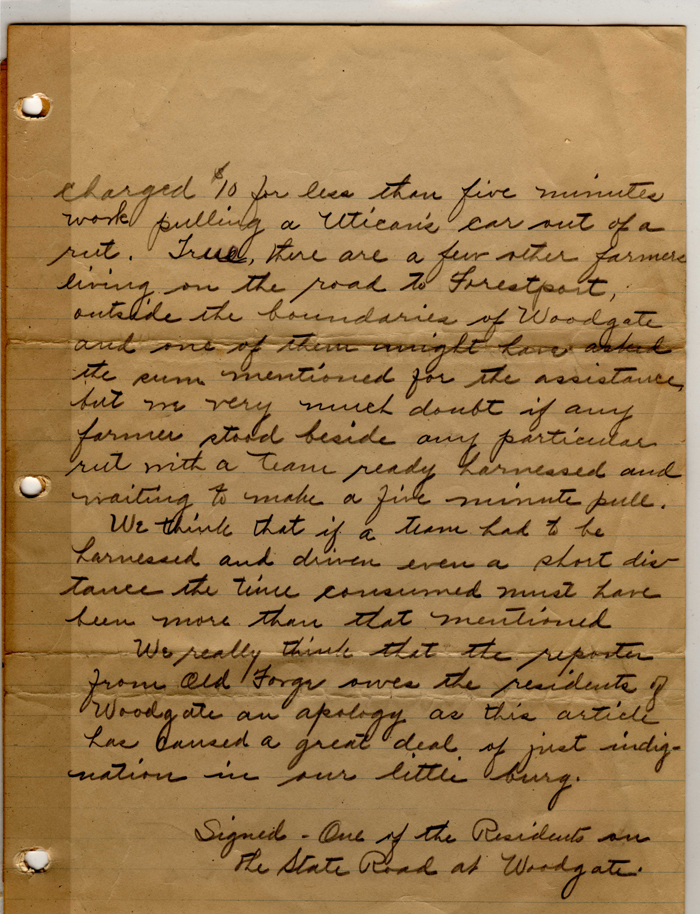 charged $10 for less than five minutes
work pulling a Utican's car out of a
rut. True, there are a few other farmers
living on the road to Forestport,
outside the boundaries of Woodgate
and one of them might have asked
the sum mentioned for the assistance,
but we very much doubt if any
farmer stood beside any particular
rut with a team ready harnessed and
waiting to make a five minute pull.
We think that if a team had to be
harnessed and driven even a short dis-
tance the time consumed must have
been more than that mentioned
We really think that the reporter
from Old Forge owes the residents of
Woodgate an apology as this article
has caused a great deal of just indig-
nation in our little burg.
Signed - One of the Residents on
the State Road at Woodgate.